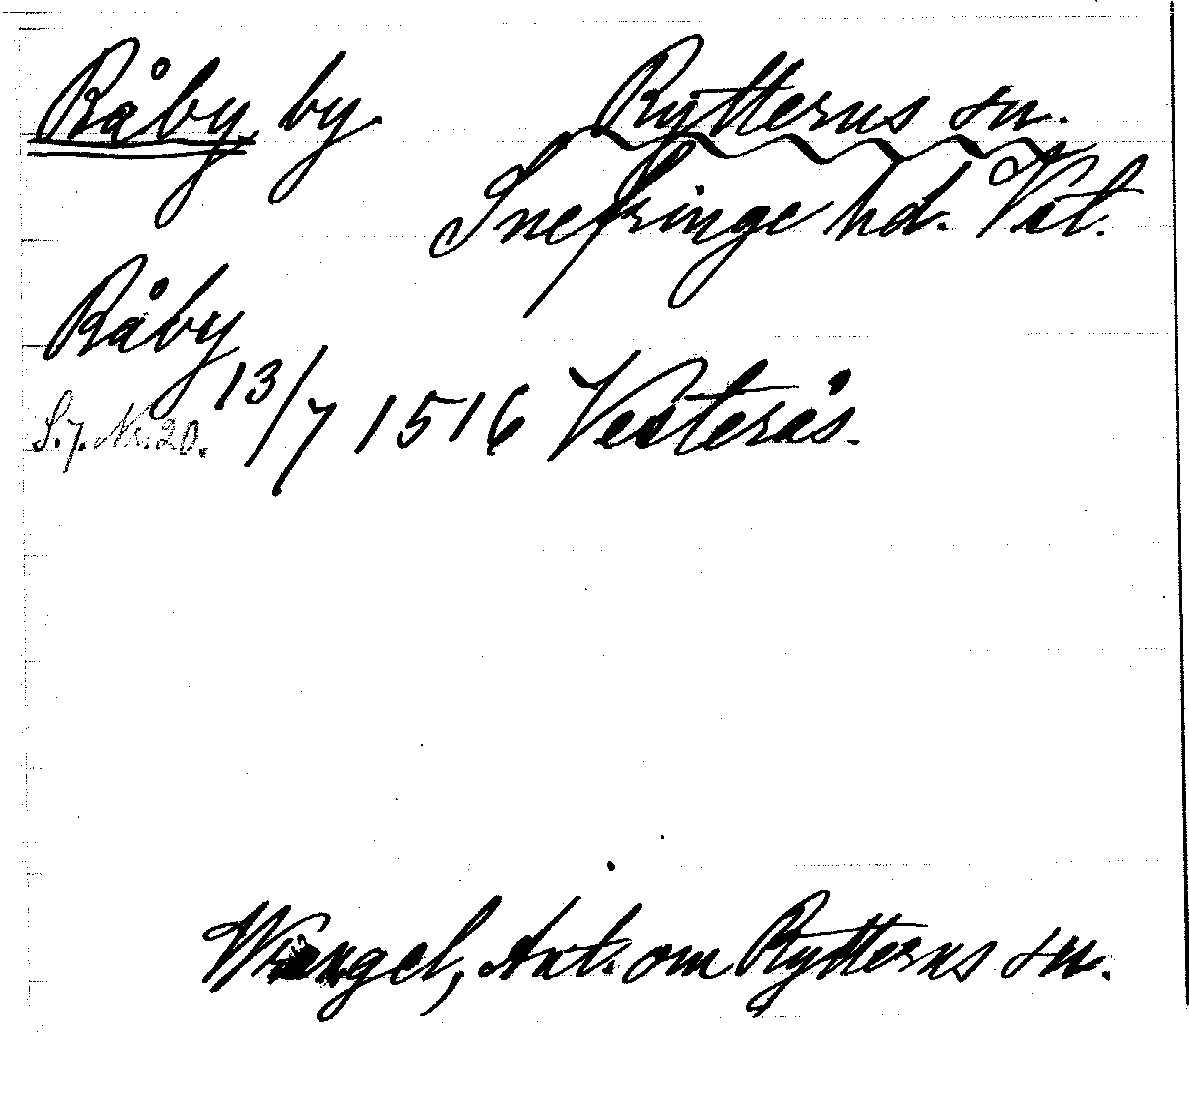 Råby by. Rytterns sn.
Snefringe hd. Vstl.
Råby
13/7 1516 Vesterås.
S. 7. Nr. 20.
Wrangel, Ant. om Rytterns sn.